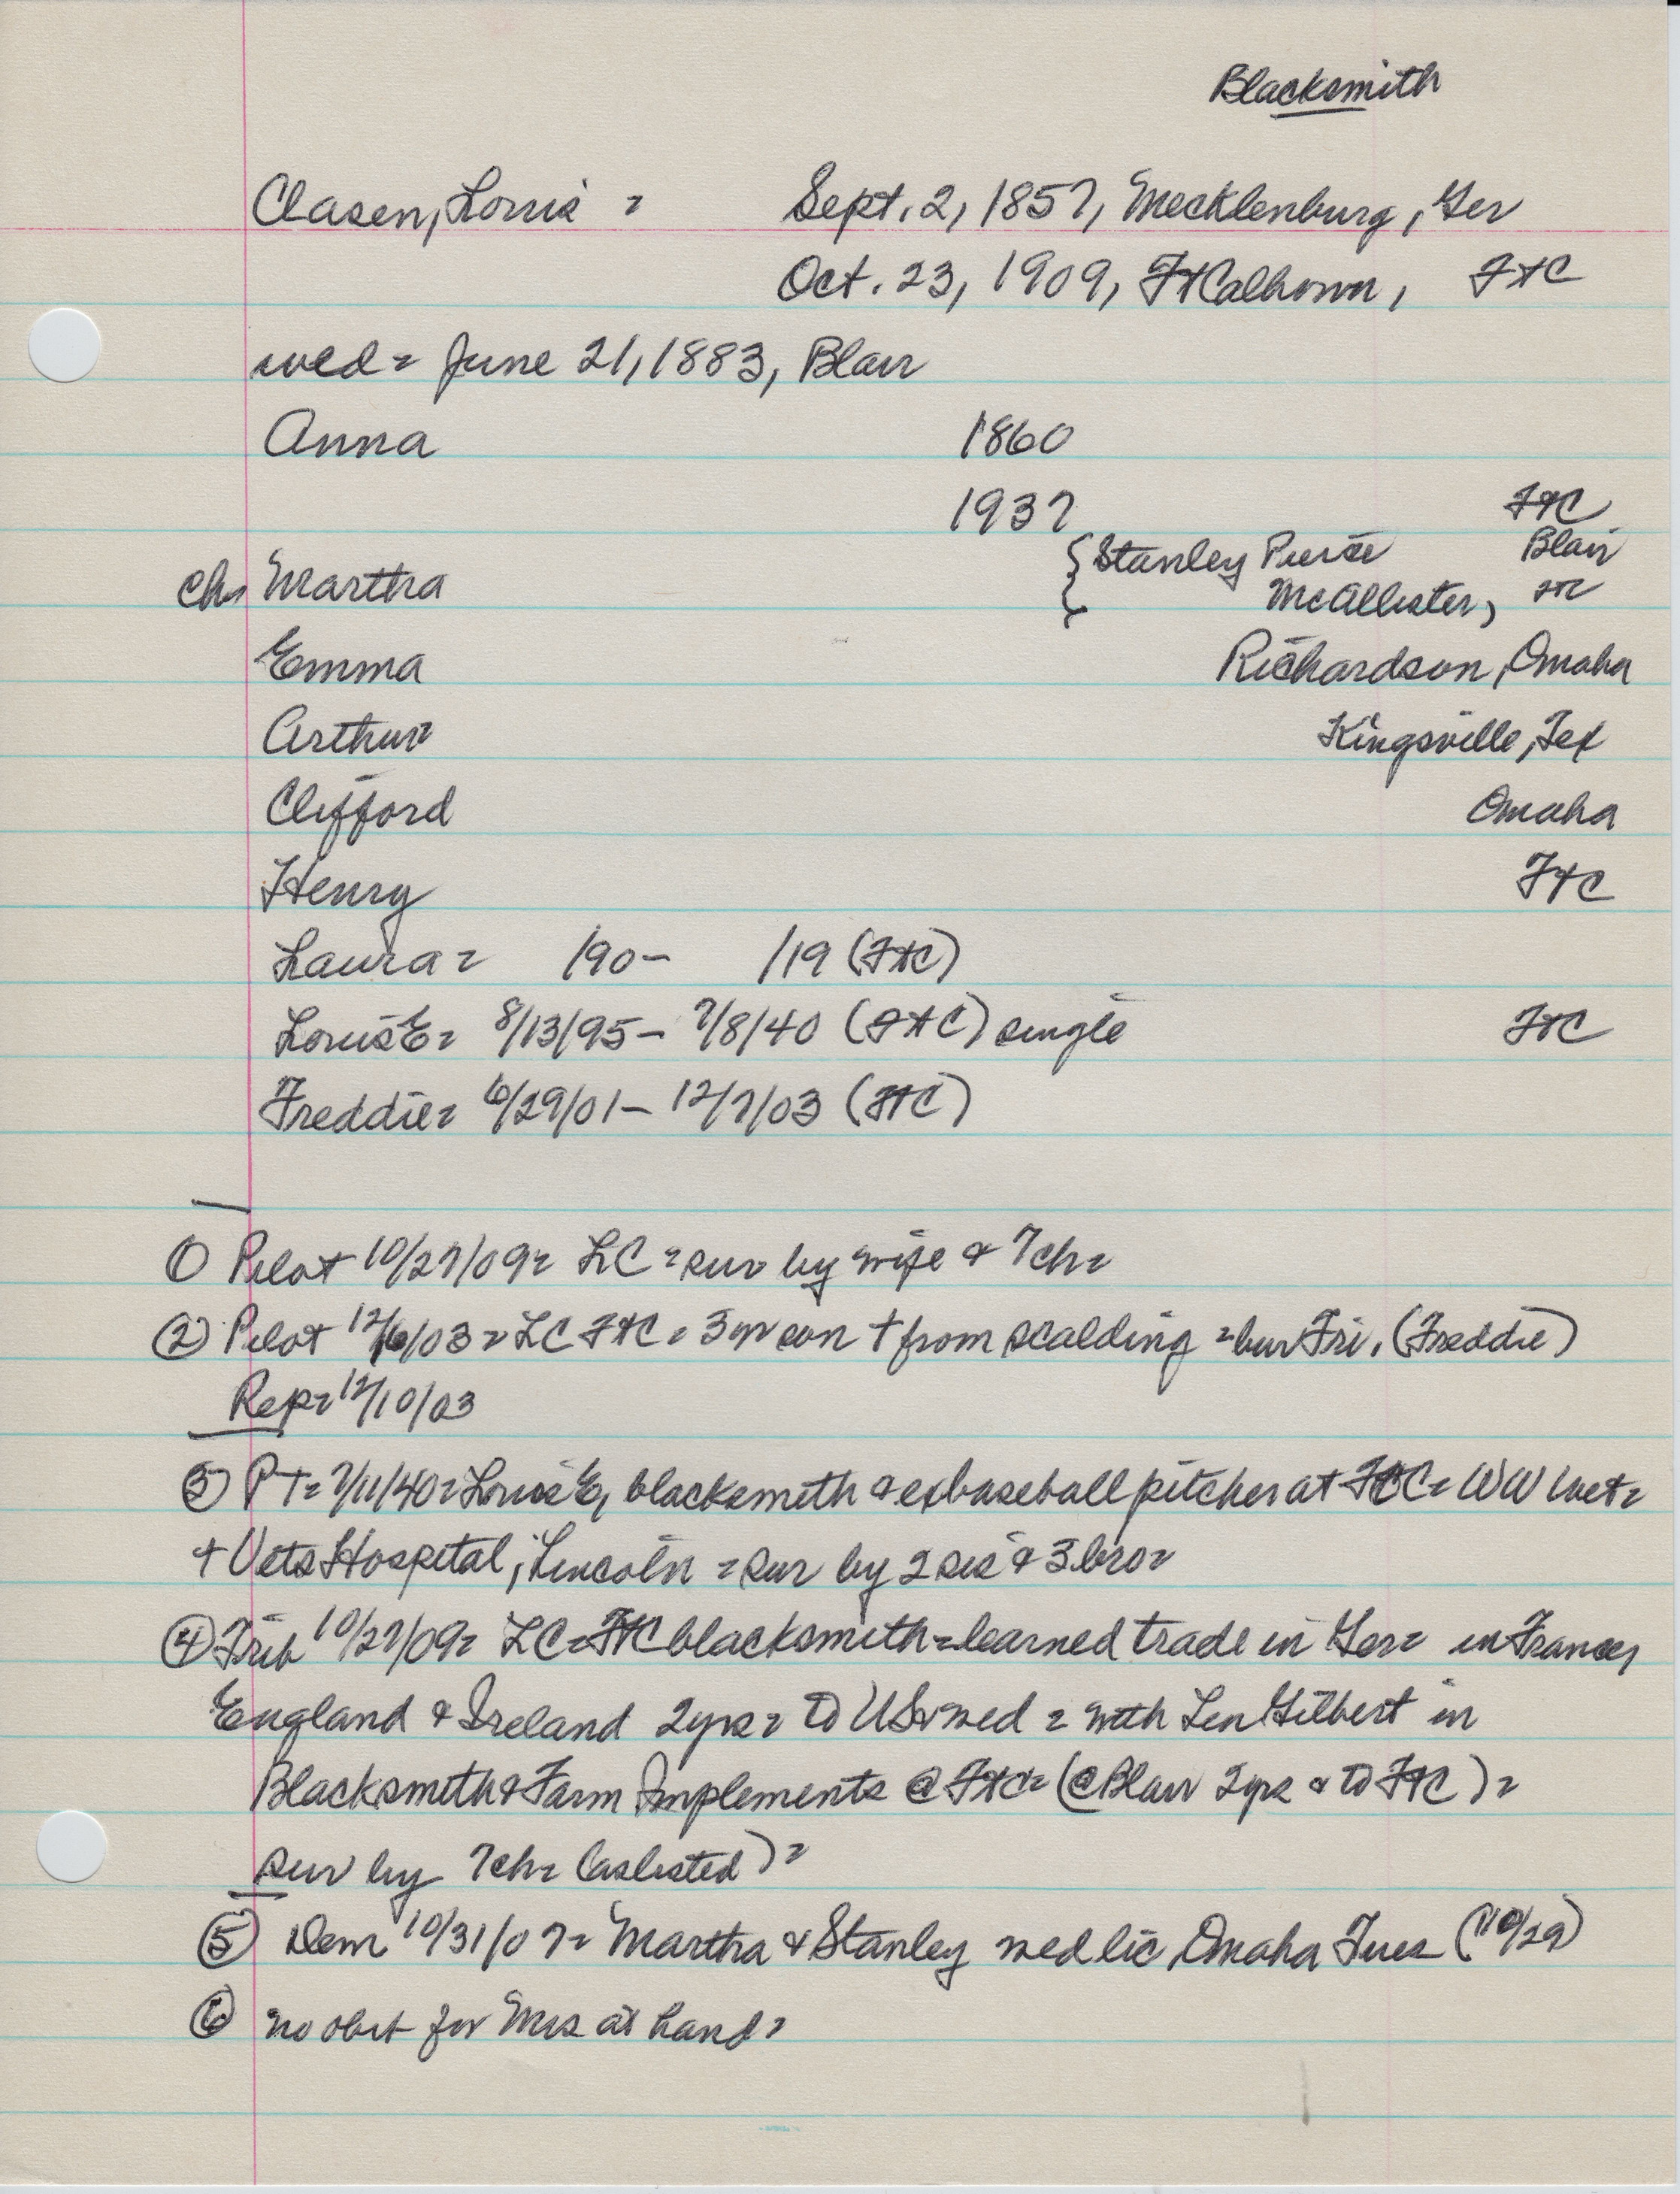 Blacksmith
Clasen, Louis = Sept. 2, 1857, Mecklenburg, Ger
Oct. 23, 1909, FtCalhoun, FtC
wed = June 21, 1883, Blair
Anna 1860
1937 FtC
{Stanley Pierce Blair
ch= Martha McAllister,
Emma Richardson, Omaha
Arthur Kingsville, Tex
Clifford Omaha
Henry FtC
Laura = /90 - /19 (FtC)
Louis E = 8/13/95 - 7/8/40 (FtC) single FtC
Freddie = 6/29/01 - 12/7/03 (FtC)
① Pilot 10/27/09 = LC = sur by wife & 7ch =
② Pilot 12/6/03 = LC FtC = 3 yr son † from scalding = bur Fri. (Freddie)
Rep = 12/10/03
③ PT = 7/11/40 = Louis E, blacksmith & exbaseball pitcher at FtC = WW I vet =
† Vets Hospital, Lincoln = sur by 2 sis & 3 bro =
④ Trib 10/27/09 = LC = FtC blacksmith = learned trade in Ger = in France,
England & Ireland 2yrs = to US & wed = with Len Gilbert in
Blacksmith & Farm Implements @ FtC = (@ Blair 2yrs & to FtC) =
sur by 7ch = (as listed) =
⑤ Dem 10/31/07 = Martha & Stanley wed lic, Omaha Tues (10/29)
⑥ no obit for Mrs at hand =